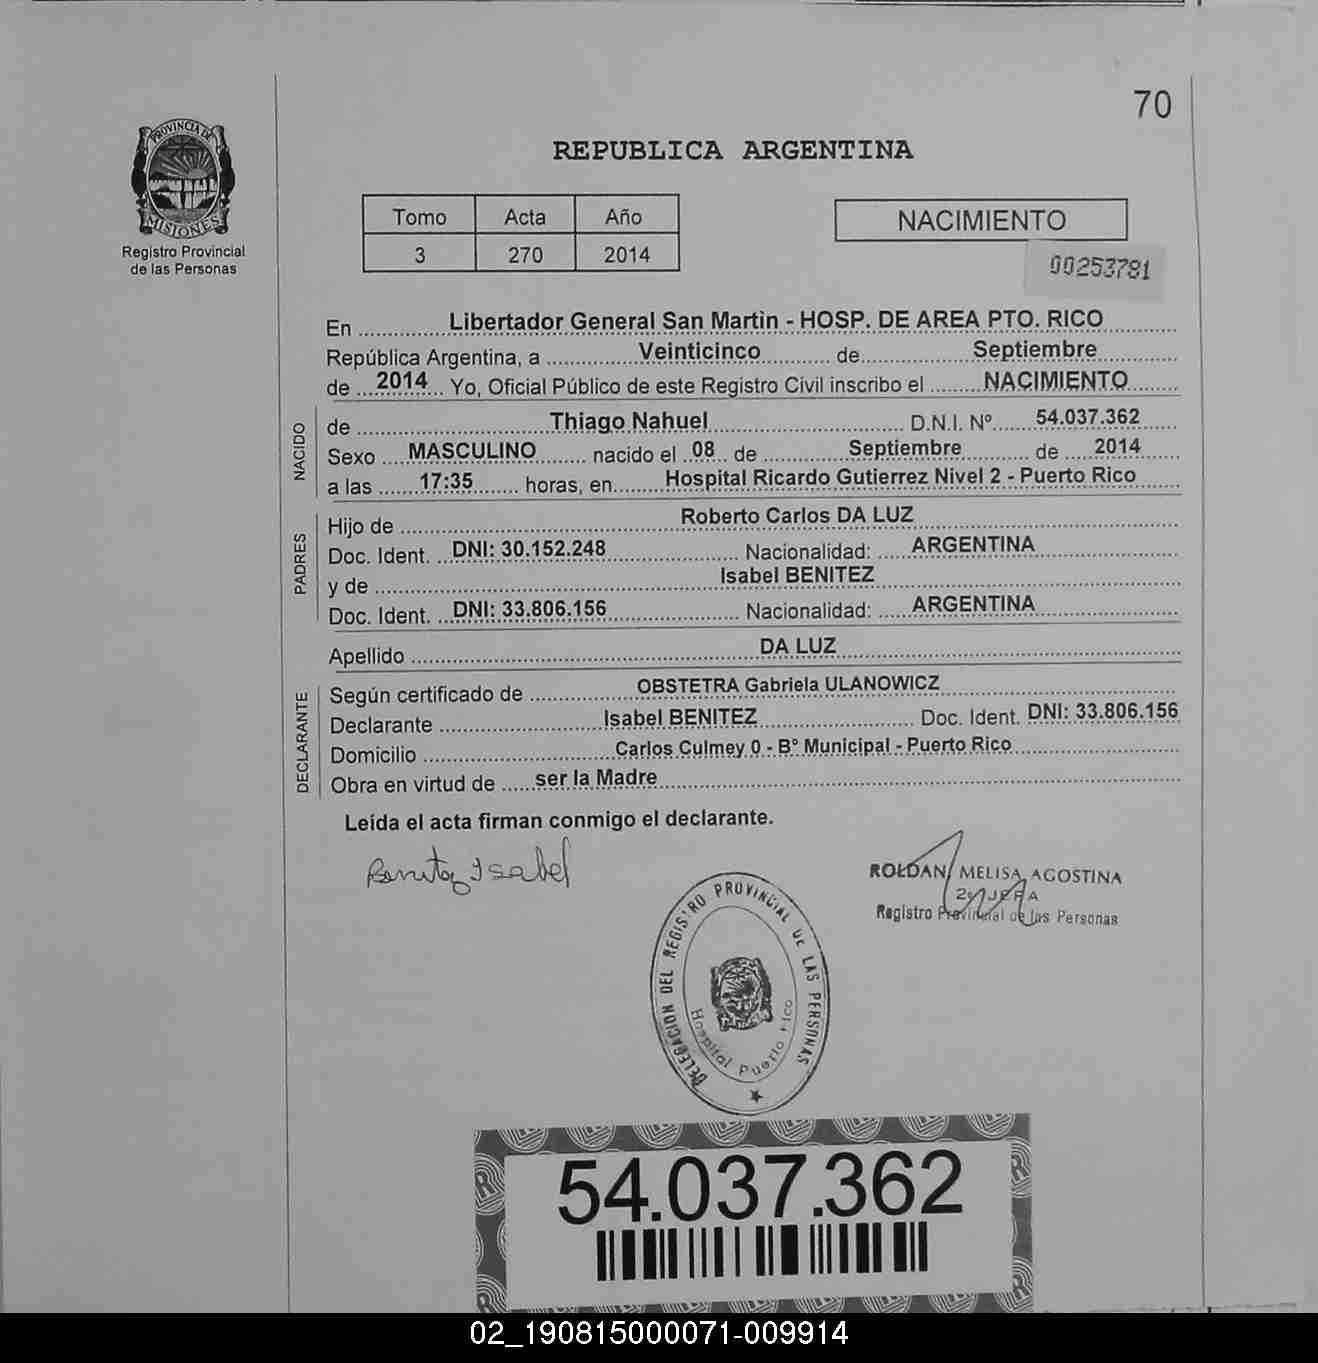 70
PROVINCIA DE
MISIONES
Registro Provincial
de las Personas
REPUBLICA ARGENTINA
Tomo Acta Año
3 270 2014
NACIMIENTO
00253781
En Libertador General San Martin - HOSP. DE AREA PTO. RICO
República Argentina, a Veinticinco de Septiembre
de 2014 Yo, Oficial Público de este Registro Civil inscribo el NACIMIENTO
NACIDO
de Thiago Nahuel D.N.I. Nº 54.037.362
Sexo MASCULINO nacido el 08 de Septiembre de 2014
a las 17:35 horas, en Hospital Ricardo Gutierrez Nivel 2 - Puerto Rico
PADRES
Hijo de Roberto Carlos DA LUZ
Doc. Ident. DNI: 30.152.248 Nacionalidad: ARGENTINA
y de Isabel BENITEZ
Doc. Ident. DNI: 33.806.156 Nacionalidad: ARGENTINA
Apellido DA LUZ
DECLARANTE
Según certificado de OBSTETRA Gabriela ULANOWICZ
Declarante Isabel BENITEZ Doc. Ident. DNI: 33.806.156
Domicilio Carlos Culmey 0 - Bº Municipal - Puerto Rico
Obra en virtud de ser la Madre
Leída el acta firman conmigo el declarante.
Benitez Isabel
ROLDAN, MELISA AGOSTINA
JEFA
Registro Provincial de las Personas
DELEGACION DEL REGISTRO PROVINCIAL DE LAS PERSONAS
Hospital Puerto Rico
54.037.362
02_190815000071-009914